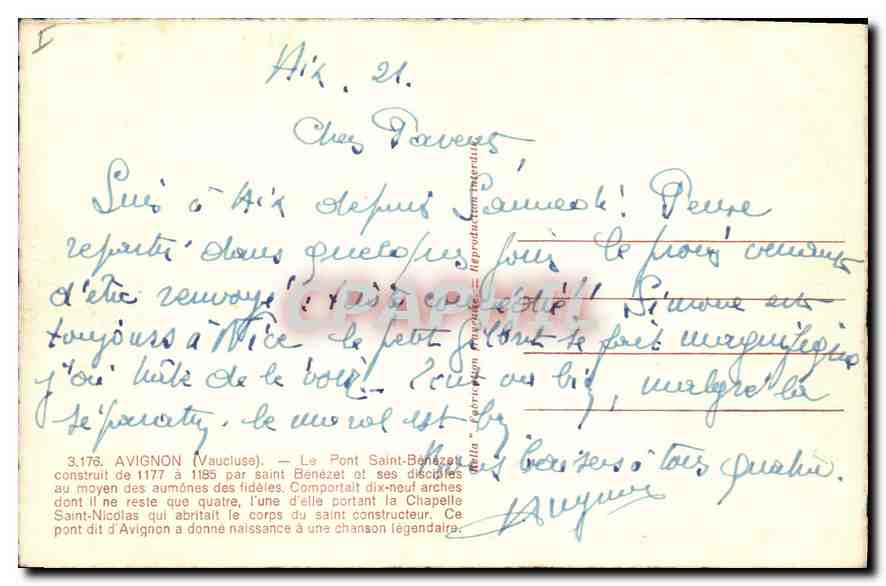 I
Aix. 21.
Chers Parents
Suis à Aix depuis Samedi! Pense
repartir dans quelques jours le procès venant
d'être renvoyé. Simone est
toujours à Nice le petit se fait magnifique
j'ai hâte de le voir. Tout va bien, malgré la
séparation le moral est bon
Bons baisers à tous quatre.
CPAPHIL
"Rella" Fabrication Française = Reproduction interdite
3.176. AVIGNON (Vaucluse). — Le Pont Saint-Bénézet
construit de 1177 à 1185 par saint Benézet et ses disciples
au moyen des aumônes des fidèles. Comportait dix-neuf arches
dont il ne reste que quatre, l'une d'elle portant la Chapelle
Saint-Nicolas qui abritait le corps du saint constructeur. Ce
pont dit d'Avignon a donné naissance à une chanson légendaire.